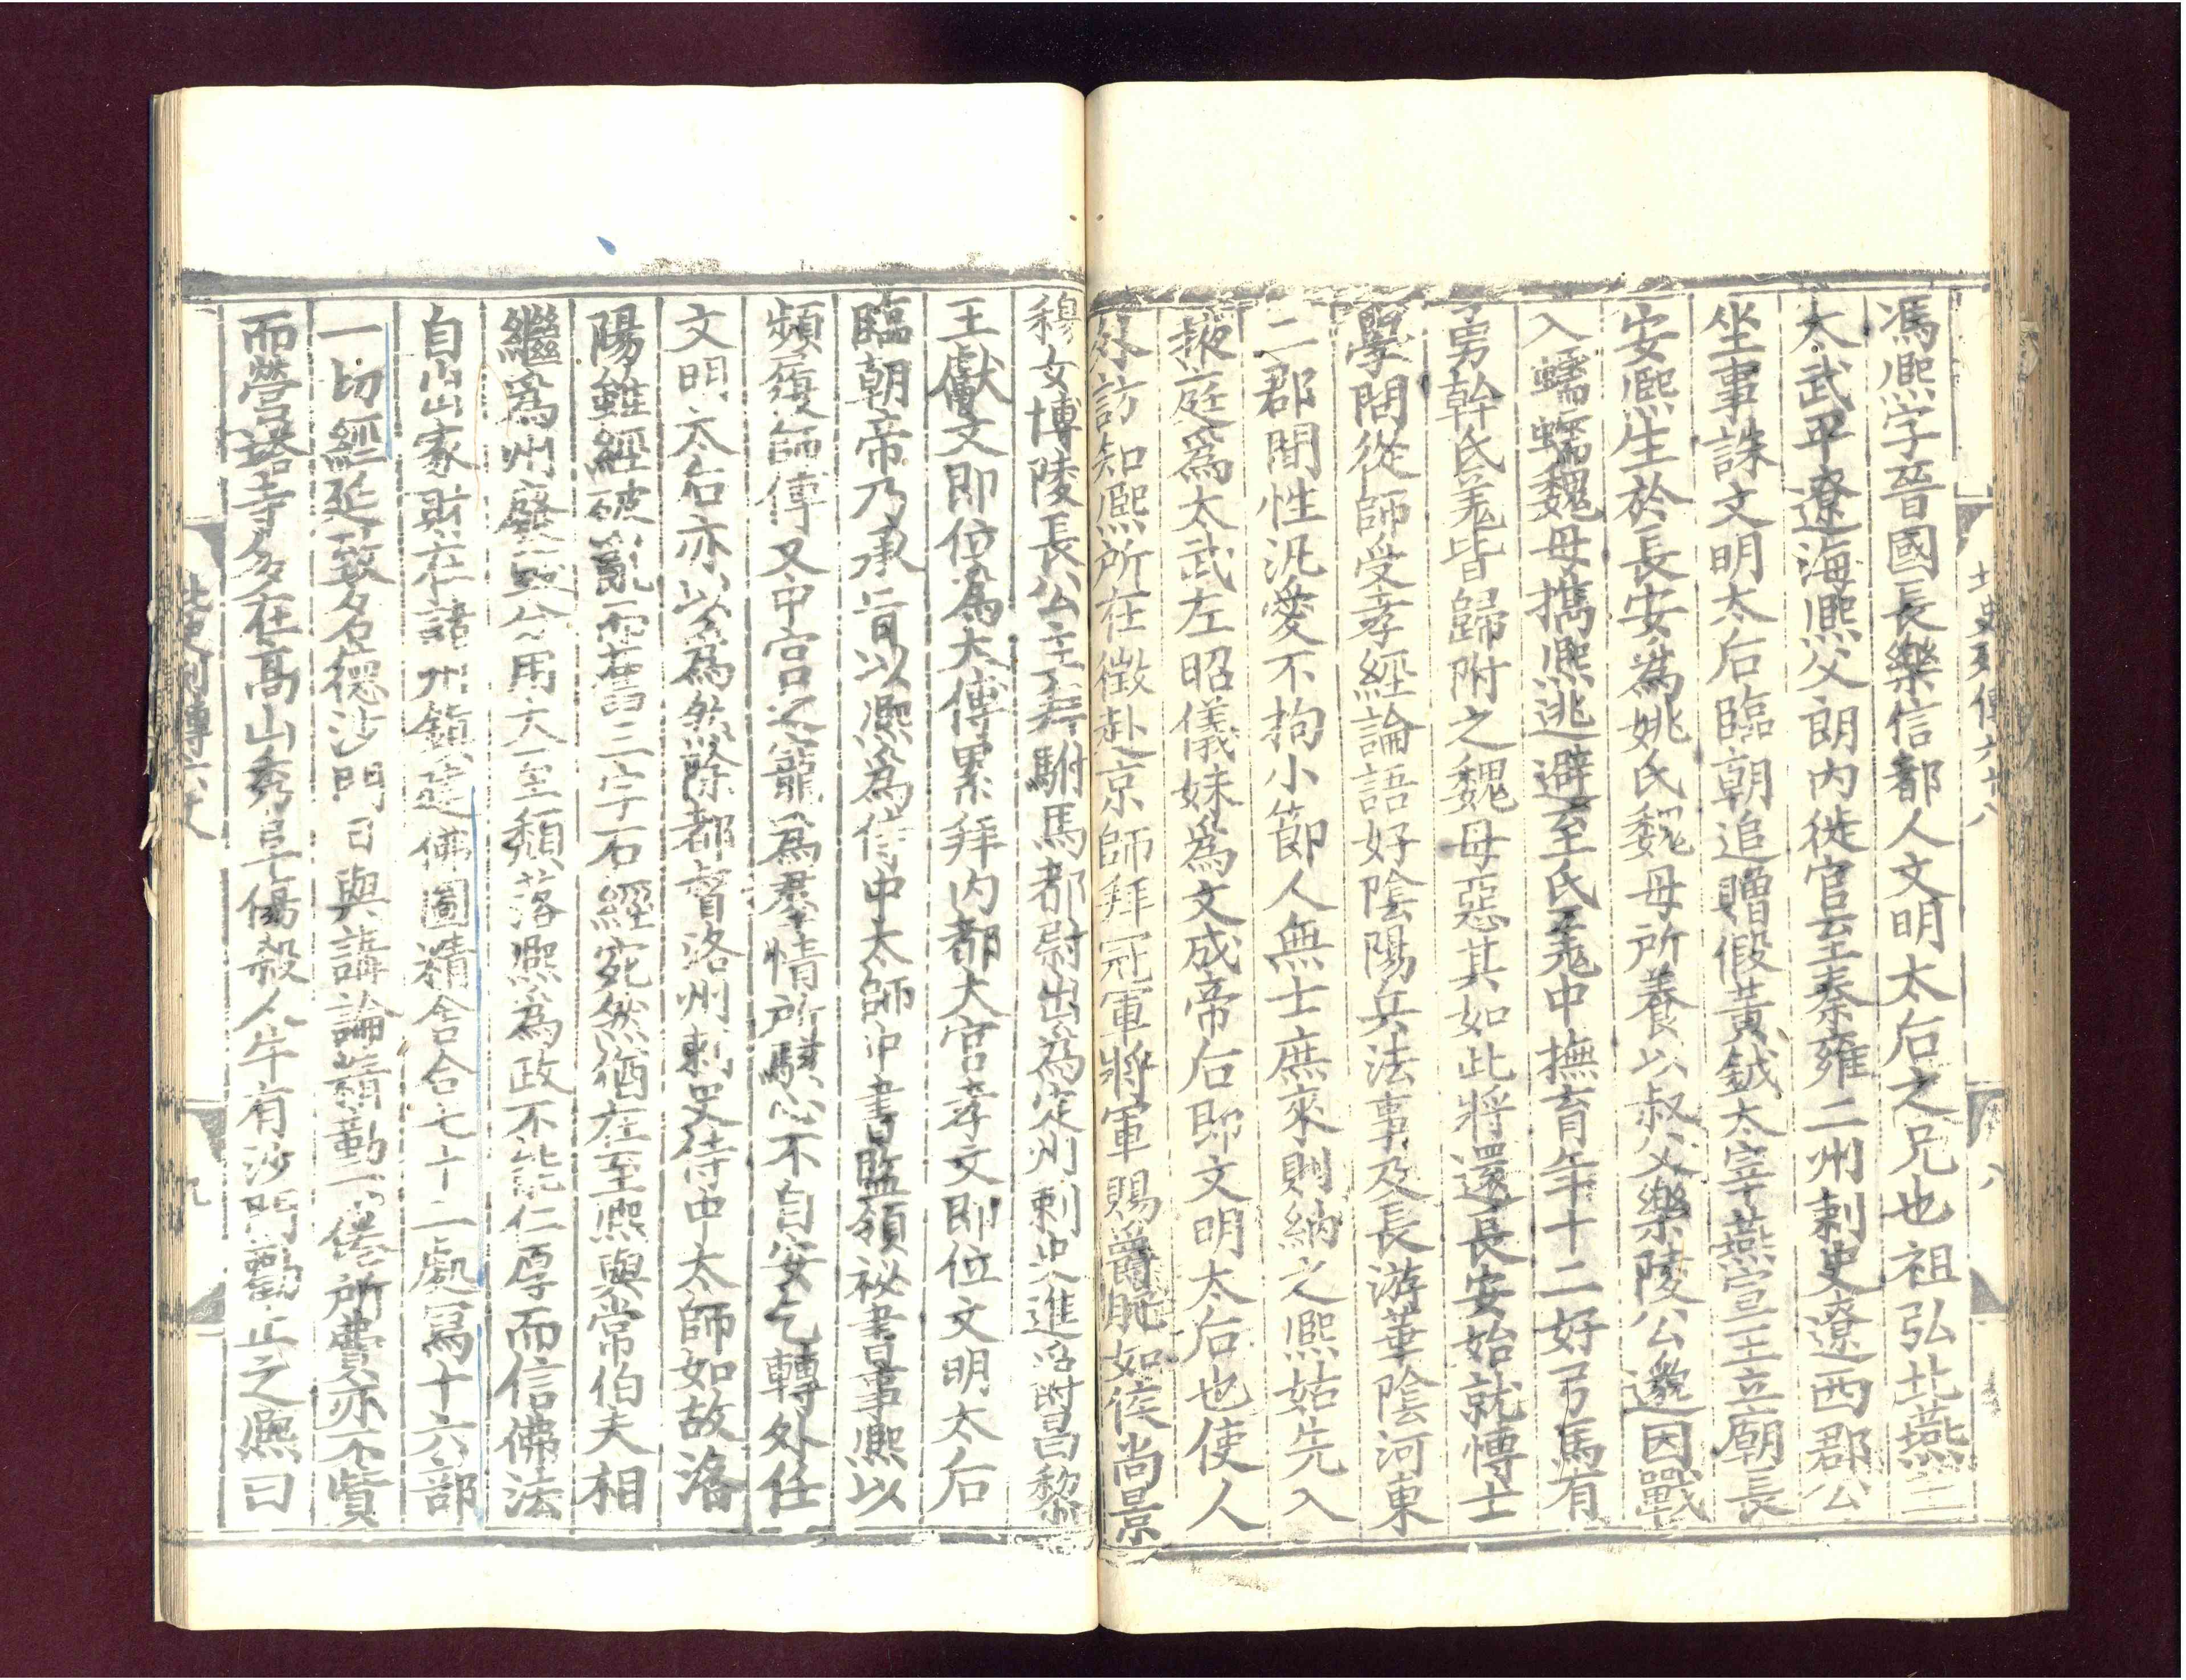 北史列傳六十八
八
馮熈字晉國長樂信都人文明太后之兄也祖弘北燕王
太武平遼海熈父朗内徙官至秦雍二州刺史遼西郡公
坐事誅文明太后臨朝追贈假黄鉞太宰燕宣王立廟長
安熈生於長安為姚氏魏母所養以叔父樂陵公邈因戰
入蠕蠕魏母攜熈逃避至氐羌中撫育年十二好弓馬有
勇幹氐羌皆歸附之魏母惡其如此將還長安始就博士
學問從師受孝經論語好陰陽兵法事及長游華陰河東
二郡間性汎愛不拘小節人無士庶來則納之熈姑先入
掖庭爲太武左昭儀妹爲文成帝后即文明太后也使人
外訪知熈所在徵赴京師拜冠軍將軍賜爵肥如侯尚景
穆女博陵長公主拜駙馬都尉出為定州刺史進爵昌黎
王獻文即位爲太傅累拜内都大官孝文即位文明太后
臨朝帝乃承旨以熈為侍中太師中書監領祕書事熈以
頻履師傅又中宫之寵爲羣情所駭心不自安乞轉外任
文明太后亦以為然除都督洛州刺史侍中太師如故洛
陽雖經破亂而舊三字石經宛然猶在至熈與常伯夫相
繼爲州廢毀分用大至頽落熈為政不能仁厚而信佛法
自出家財在諸州鎮建佛圖精舍合七十二處寫十六部
一切經延致名德沙門日與講論精勤不倦所費亦不貲
而營塔寺多在高山秀阜傷殺人牛有沙門勸止之熈曰
北史列傳六十八
九